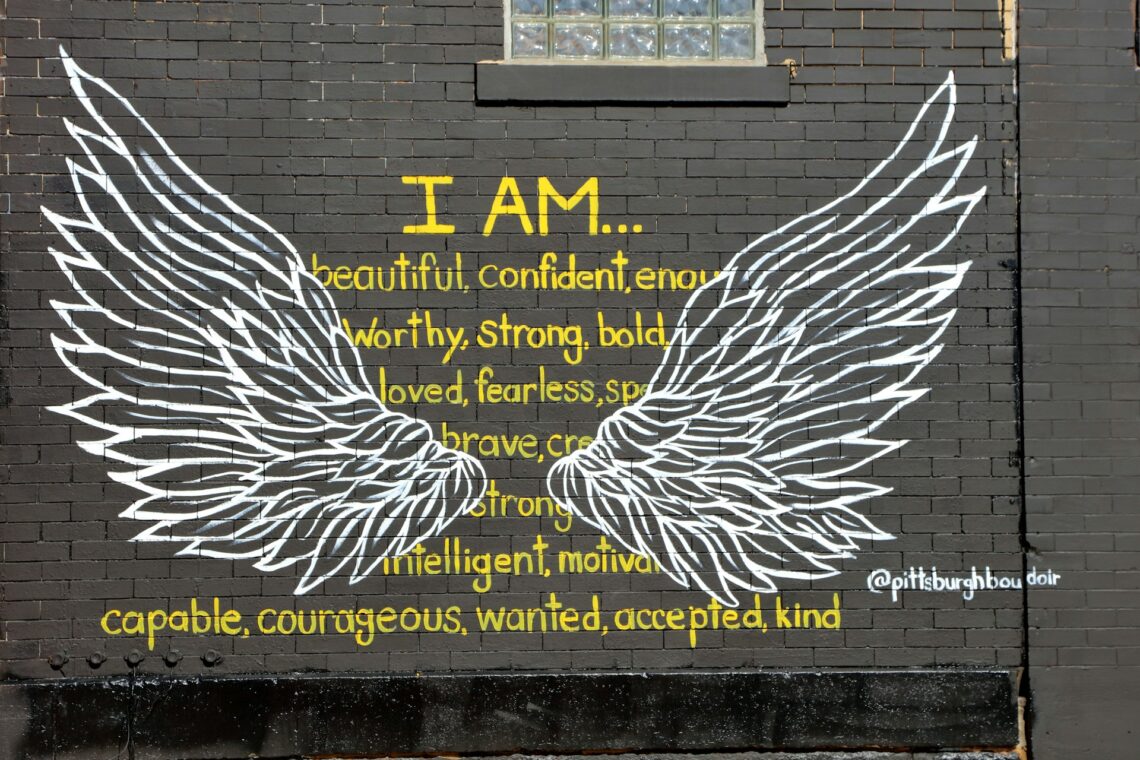 I AM...
beautiful, confident, enou
worthy, strong, bold,
loved, fearless, spe
brave, cre
strong
intelligent, motiva
capable, courageous, wanted, accepted, kind
@pittsburghboudoir